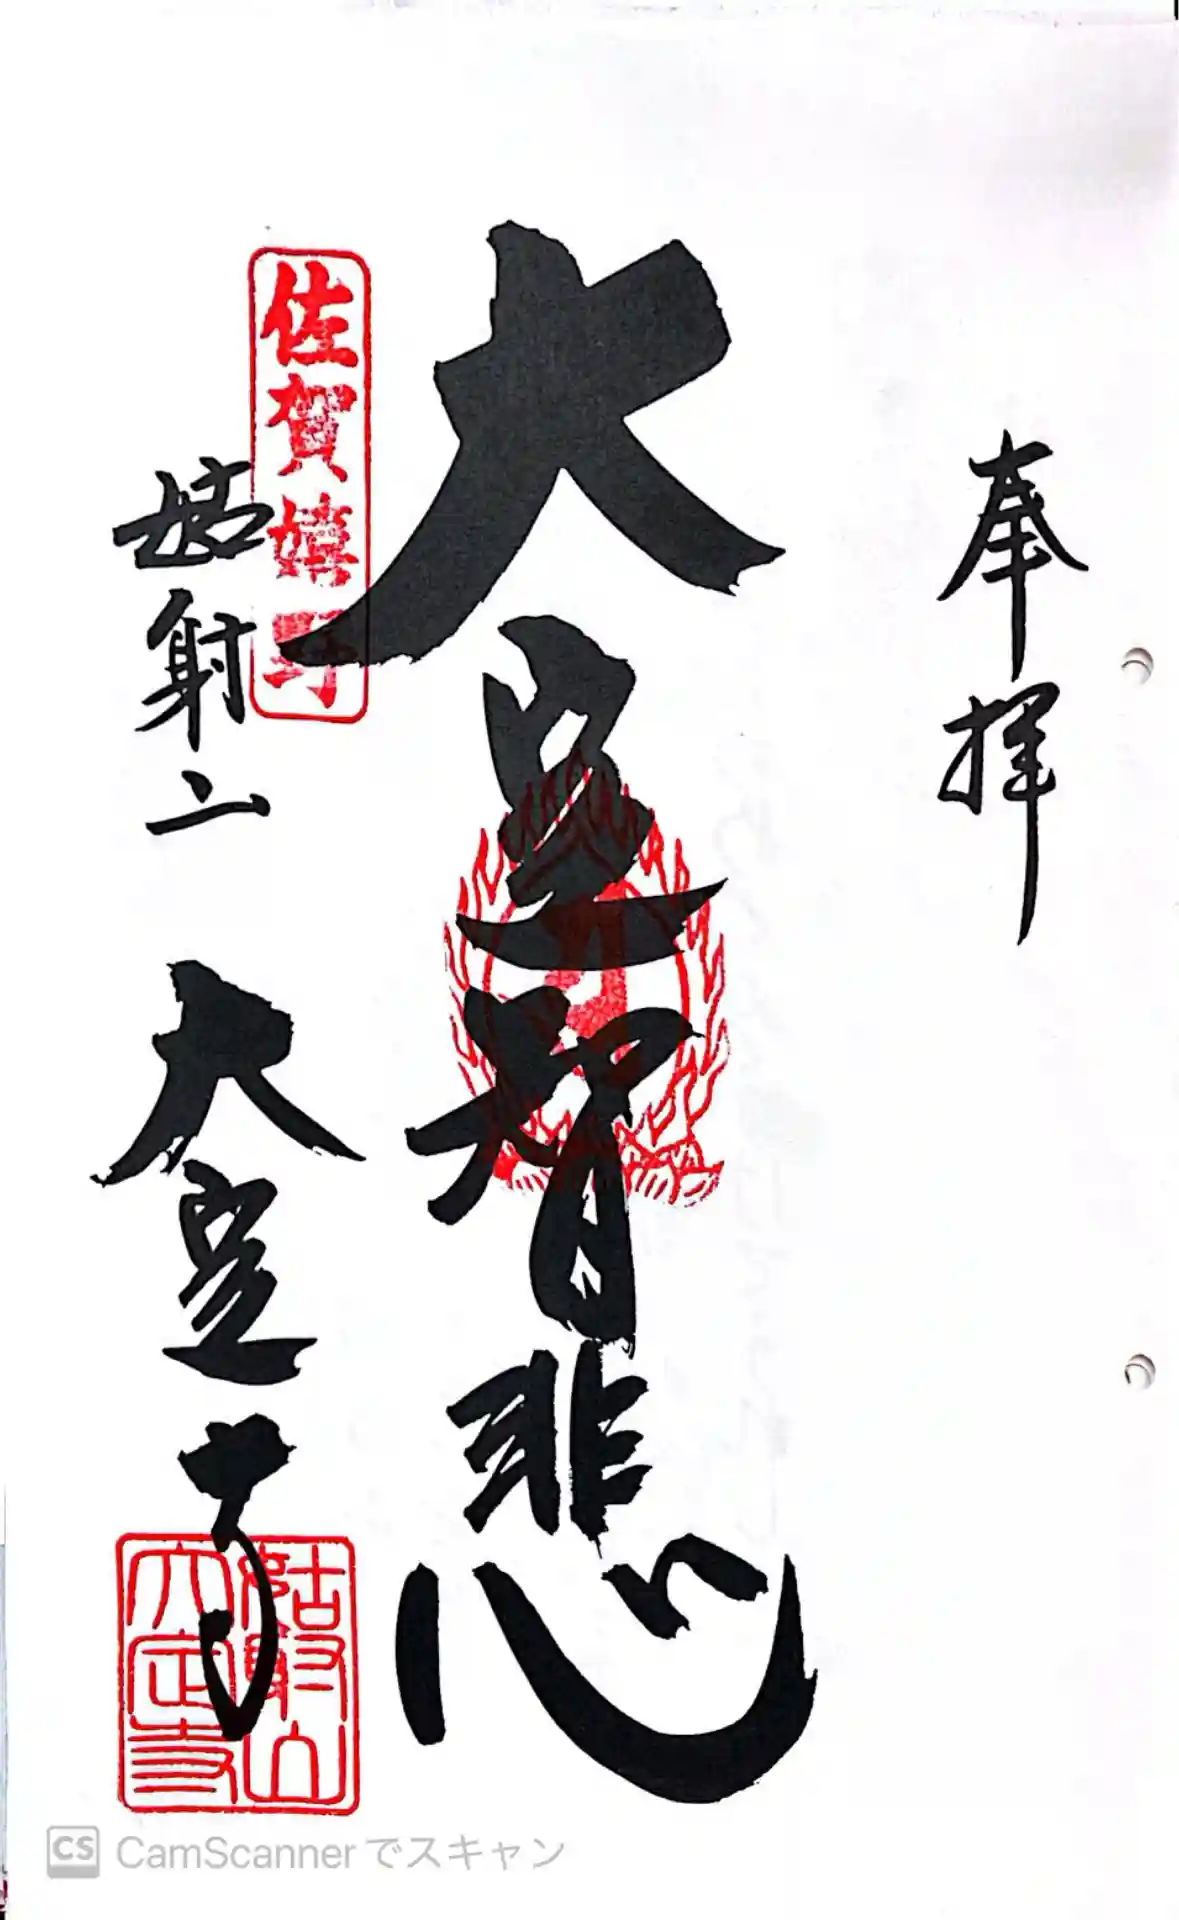 奉拝
大定智悲
佐賀嬉野
姑射山 大定寺
姑射山
大定寺
CS CamScannerでスキャン